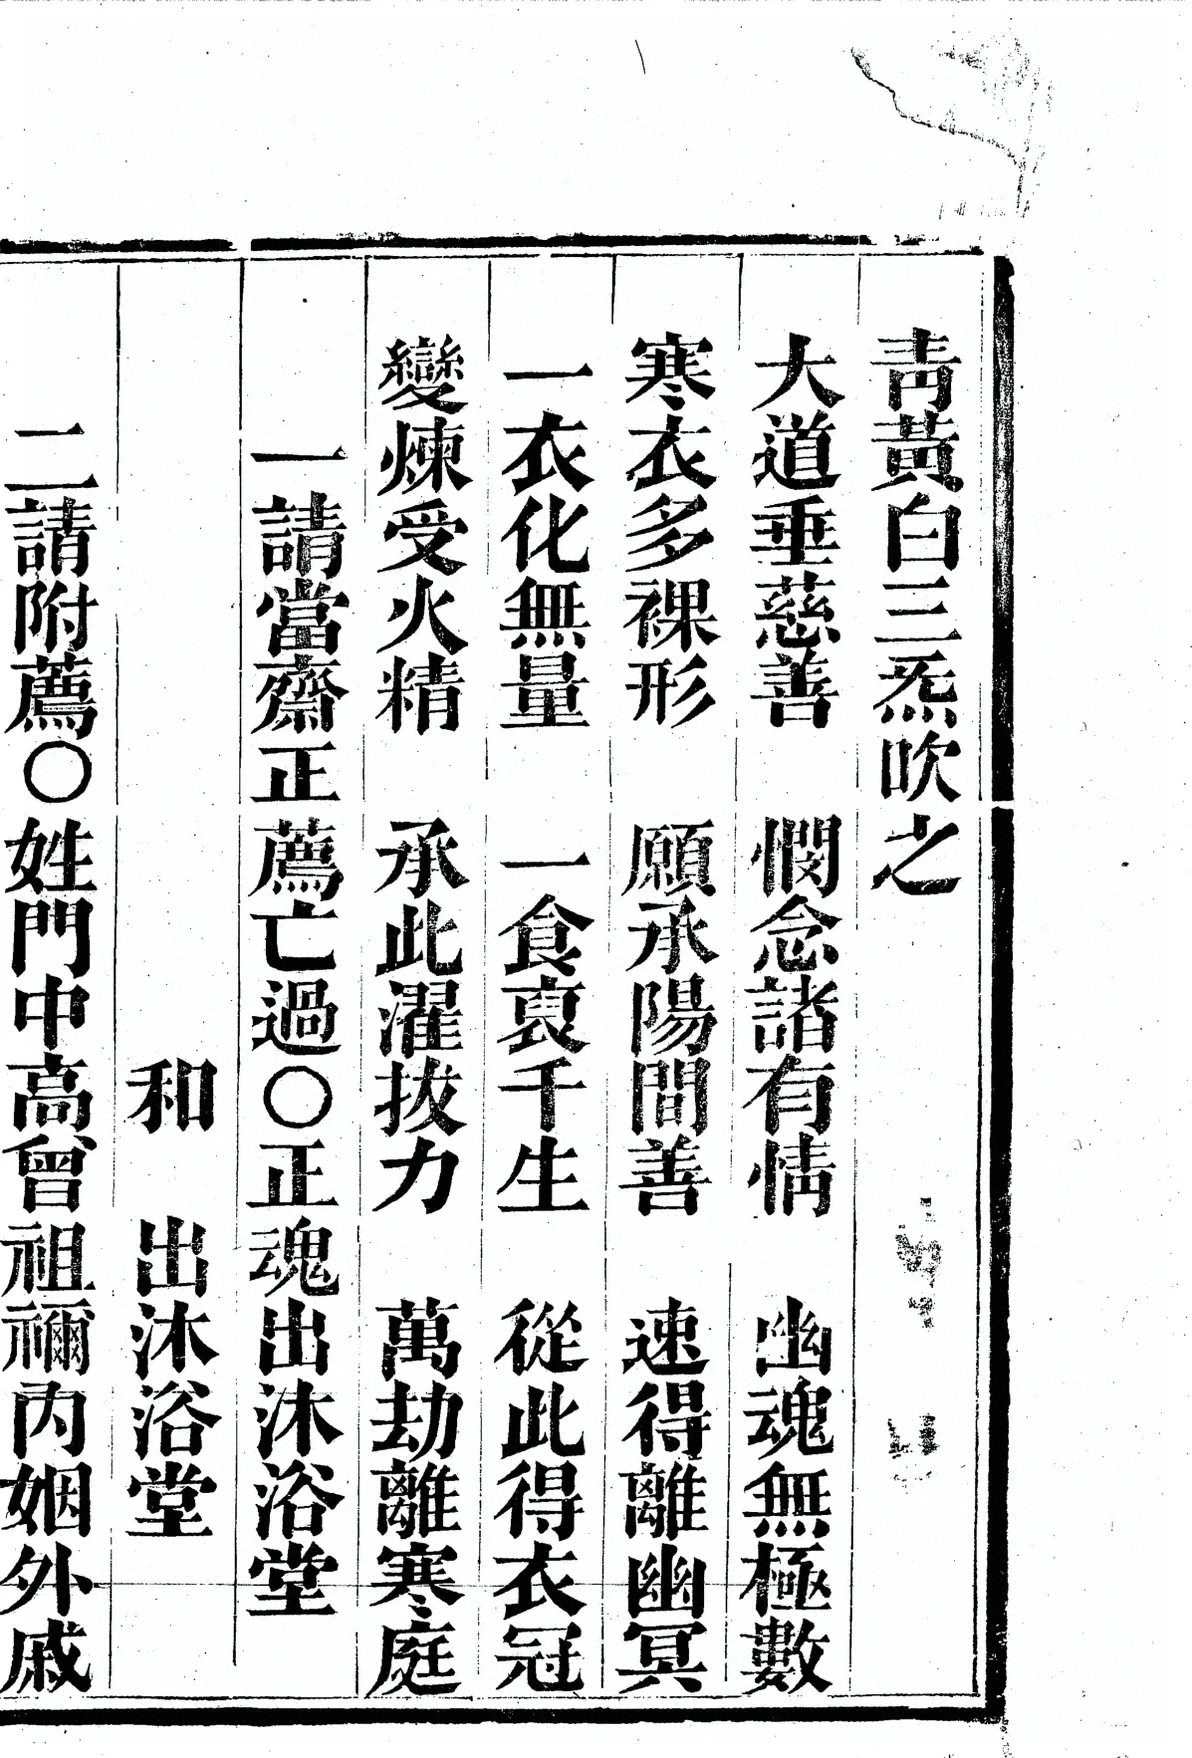 靑黃白三炁吹之
大道垂慈善　憫念諸有情　幽魂無極數
寒衣多裸形　願承陽間善　速得離幽冥
一衣化無量　一食裒千生　從此得衣冠
變煉受火精　承此濯拔力　萬劫離寒庭
一請當齋正薦亡過〇正魂出沐浴堂
和　出沐浴堂
二請附薦〇姓門中高曾祖禰內姻外戚